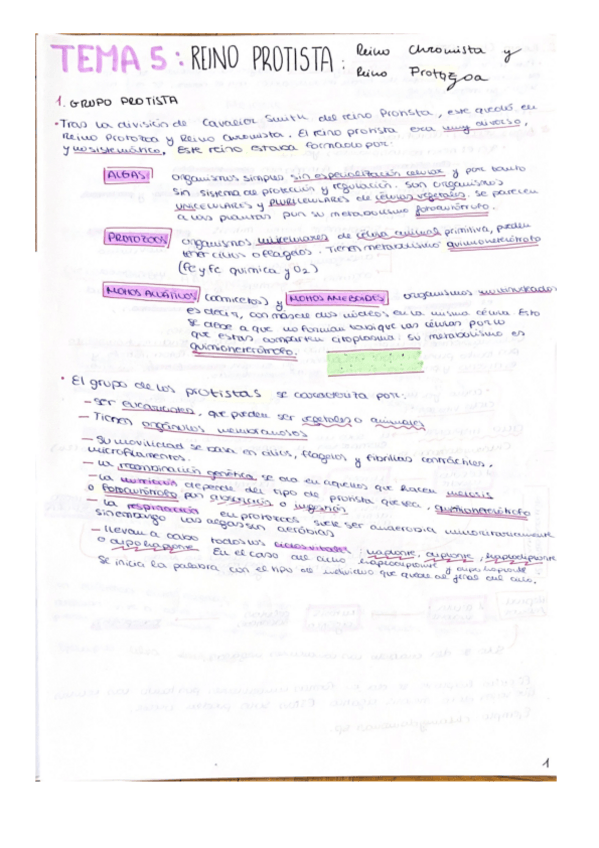 TEMA 5: REINO PROTISTA: Reino Chromista y
Reino Protozoa
1. GRUPO PROTISTA
• Tras la división de Cavalier Smith del reino Protista, este quedó en
Reino Protozoa y Reino Chromista. El reino protista era muy diverso,
y no sistemático. Este reino estaba formado por:
ALGAS organismos simples sin especialización celular y por tanto
sin sistema de protección y regulación. Son organismos
UNICELULARES y PLURICELULARES de células vegetales. Se parecen
a las plantas por su metabolismo fotoautótrofo.
PROTOZOOS organismos unicelulares de célula animal primitiva, pueden
tener cilios o flagelos. Tienen metabolismo quimioheterótrofo
(Fe y fe química y O2)
MOHOS ACUÁTICOS (oomicetos) y MOHOS AMEBOIDES: organismos multinucleados
es decir, con más de dos núcleos en la misma célula. Esto
se debe a que no forman tabique las células por lo
que estas comparten citoplasma: su metabolismo es
quimioheterótrofo.
• El grupo de los protistas se caracteriza por:
– Ser eucariontes, que pueden ser vegetales o animales
– Tienen orgánulos membranosos
– Su movilidad se basa en cilios, flagelos y fibrillas contráctiles,
microfilamentos.
– La recombinación genética se da en aquellos que hacen meiosis
– La nutrición depende del tipo de protista que sea, quimioheterótrofo
o fotoautótrofo por absorción o ingestión
– La respiración en protozoos suele ser anaerobia
sin embargo las algas son aerobias
– Llevan a cabo todos los ciclos vitales: haplonte, diplonte, haplodiplonte
o diplohaplonte. En el caso del ciclo haplodiplonte y diplohaplonte
se inicia la palabra con el tipo de individuo que queda al final del ciclo.
1